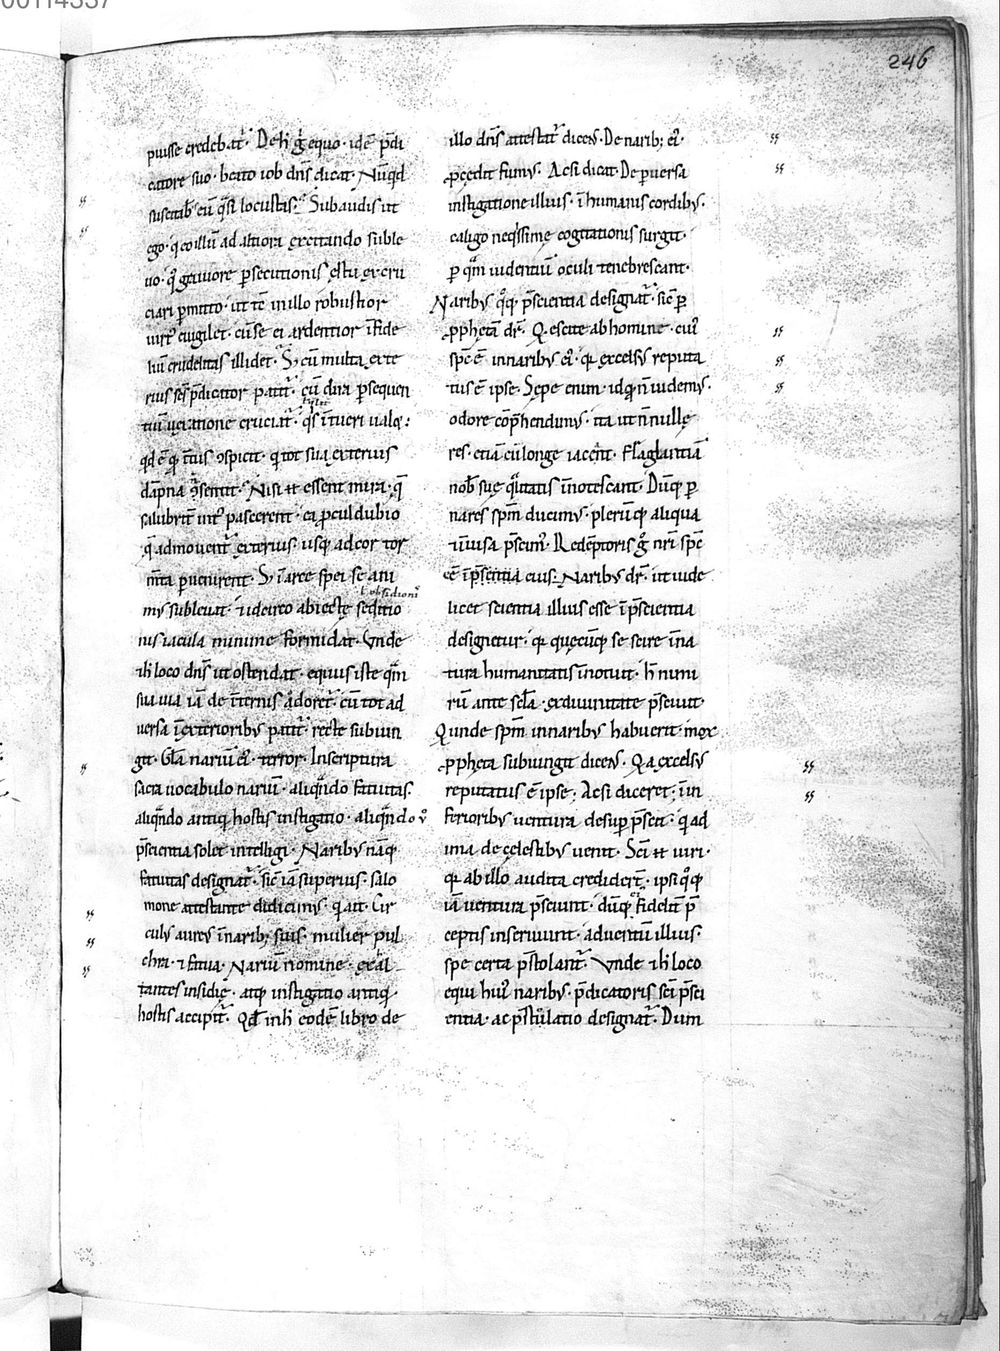 246
puisse credebat᷑. De h̄ ḡ equo. idē p̄di
catore suo. beato iob dn̄s dicat. Nūqd
suscitab̄ eū q̄si locustis. Subaudis ut
ego. q̇ eo illū ad altiora excitando suble
uo. q̊ grauiore ꝑsecutionis ęstu excru
ciari ꝑmitto. ut tē in illo robustior
uirt᷒ euigilet. cū se ei ardentior īfide
liū crudelitas illidet. S; cū multa exte
rius sc̄s p̄dicator patit᷑. cū dira ꝑsequen
tiū uexatione cruciat᷑. q̇s ītueri ualeꝫ.
qd ē qđ int᷒ ꝯspicit. q̇ tot sua exterius
dāpna ꝯsentit. Nisi ĕt essent mira. q̄
salubrit᷑ int᷒ pascerent. ei ꝓculdubio
q̄ admouent᷑ exterius. usq; ad cor tor
m̄ta ꝑuenirent. S; ī arce spei se ani
ł obsidionis
mꝰ subleuat. ⁊ idcirco abiectę seditio
nis iacula minime formidat. Vnde
⁊ h̄ loco dn̄s ut ostendat. equus iste q̄m
sua uia iā de īternis odoret᷑. cū tot ad
uersa ī exterioribꝰ patit᷑. recte subiun
git. Gł̄a nariū ei᷒. terror. In scriptura
sacra uocabulo nariū. aliqn̄do fatuitas.
aliqn̄do antiq̇ hostis instigatio. aliqn̄do ů
p̄scientia solet intelligi. Naribꝰ nāq;
fatuitas designat᷑. sic̄ iā superius. salo
mone attestante didicimꝰ. q̇ ait. Cir
culꝰ aureꝰ ī narib; suis. mulier pul
chra. ⁊ fatua. Nariū nomine. exal
tantes insidię. atq; instigatio antiq̇
hostis accipit᷑. Qđ in h̄ eodē libro de
illo dn̄s attestat᷑ dicens. De narib; ei᷒.
ꝓcedit fumꝰ. Ac si dicat. De ꝑuersa
instigatione illius. ī humanis cordibꝰ.
caligo neq̇ssimę cogitationis surgit.
ꝑ q̄m uidentiū oculi tenebrescant.
Naribꝰ q̊q; p̄scientia designat᷑. sic̄ ꝑ
ꝓphetā dr̄. Qescite ab homine. cui᷒
sp̄c ē in naribꝰ ei᷒. qꝛ excelsꝰ reputa
tus ē ipse. Sępe enim. id qđ n̄ uidemꝰ.
odore cōp̄hendimꝰ. ita ut n̄nullę
res. etiā cū longe iacent. flaglantiā
nob̄ suę q̄litatis īnotescant. Dūq; ꝑ
nares sp̄m ducimꝰ. plerūq; aliqua
⁊ īuisa p̄scim᷒. Redēptoris g̊ nr̄i sp̄c
ēē ī p̄sentia eius. Naribꝰ dr̄. ut uide
licet scientia illius esse ī p̄scientia
designetur. qꝛ quęcūq; se scire ī na
tura humanitatis īnotuit. h̄ nimi
rū ante scl̄a. ex diuinitate p̄sciuit.
Q unde sp̄m in naribꝰ habuerit. mox
ꝓpheta subiungit dicens. Q a excelsꝰ
reputatus ē ipse. Ac si diceret. ī in
ferioribꝰ uentura desuꝑ p̄scit. q̇ ad
ima de cęlestibꝰ uenit. Sc̄i ĕt uiri.
qꝛ ab illo audita crediderūt. ipsi q̊q;
iā uentura p̄sciunt. dūq; fidelit᷑ p̄
ceptis inseruiunt. aduentū illius.
spe certa p̄stolant᷑. Vnde ⁊ h̄ loco
equi hui᷒ naribꝰ. p̄dicatoris sc̄i p̄sci
entia. ac p̄stulatio designat᷑. Dum